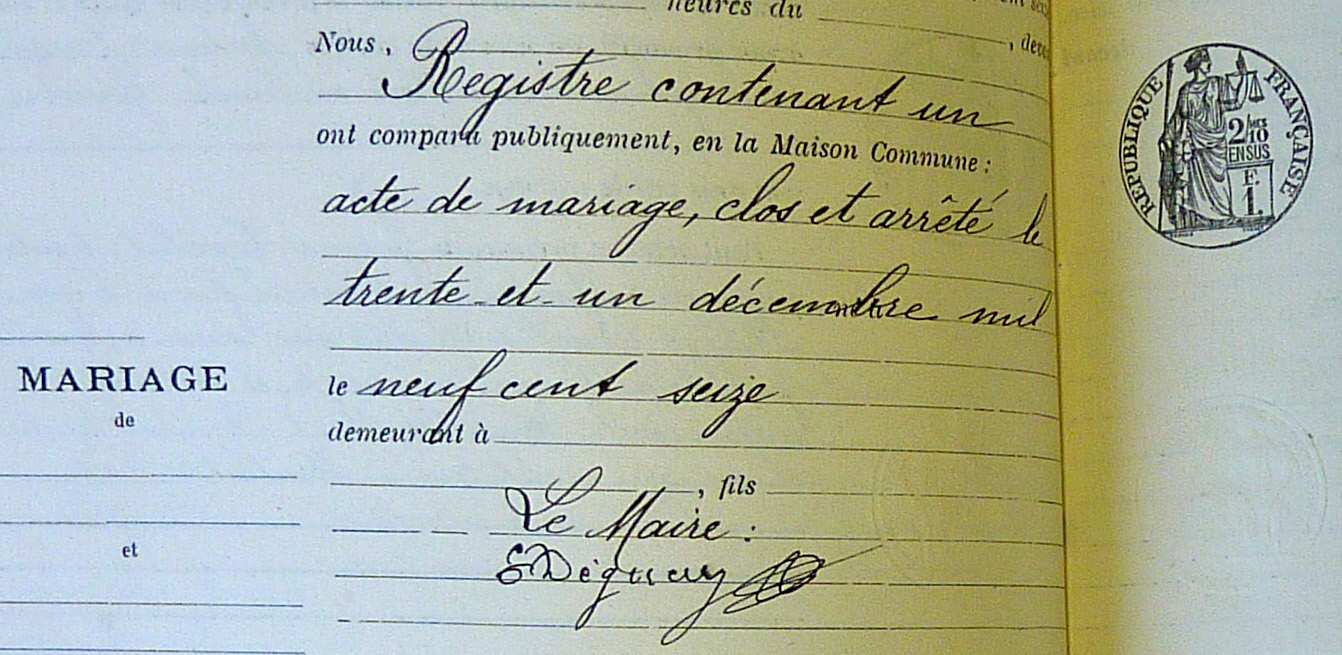 heures du
Nous,
, deva
Registre contenant un
ont comparu publiquement, en la Maison Commune :
acte de mariage, clos et arrêté le
trente et un décembre mil
le neuf cent seize
demeurant à
, fils
Le Maire :
MARIAGE
de
et
RÉPUBLIQUE FRANÇAISE
2/10
EN SUS
F.
1.